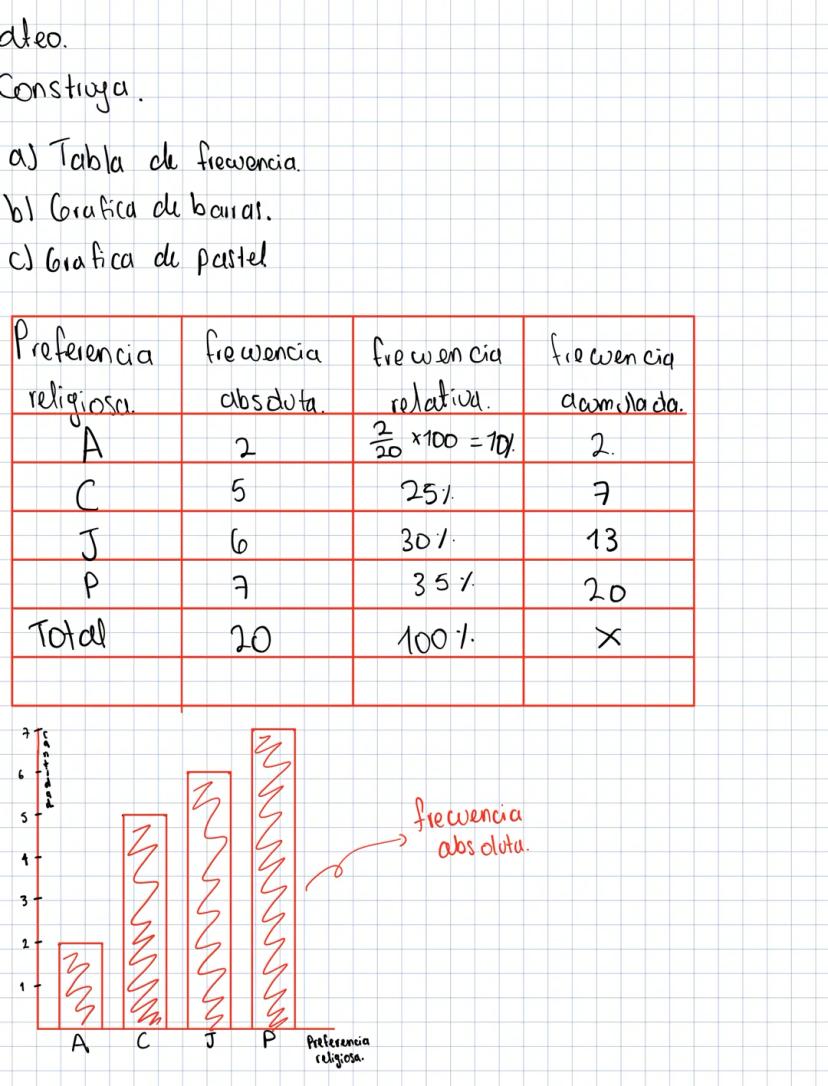 ateo.
Construya.
a) Tabla de frecuencia.
b) Grafica de barras.
c) Grafica de pastel
Preferencia religiosa. frecuencia absoluta. frecuencia relativa. frecuencia acumulada.
A 2 2/20 x100 = 10% 2.
C 5 25% 7
J 6 30%. 13
P 7 35% 20
Total 20 100%. X
7
6
5
4
3
2
1
cantidad
frecuencia
absoluta.
A C J P Preferencia
religiosa.